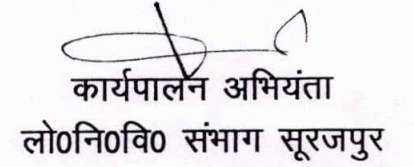 कार्यपालन अभियंता
लो0नि0वि0 संभाग सूरजपुर